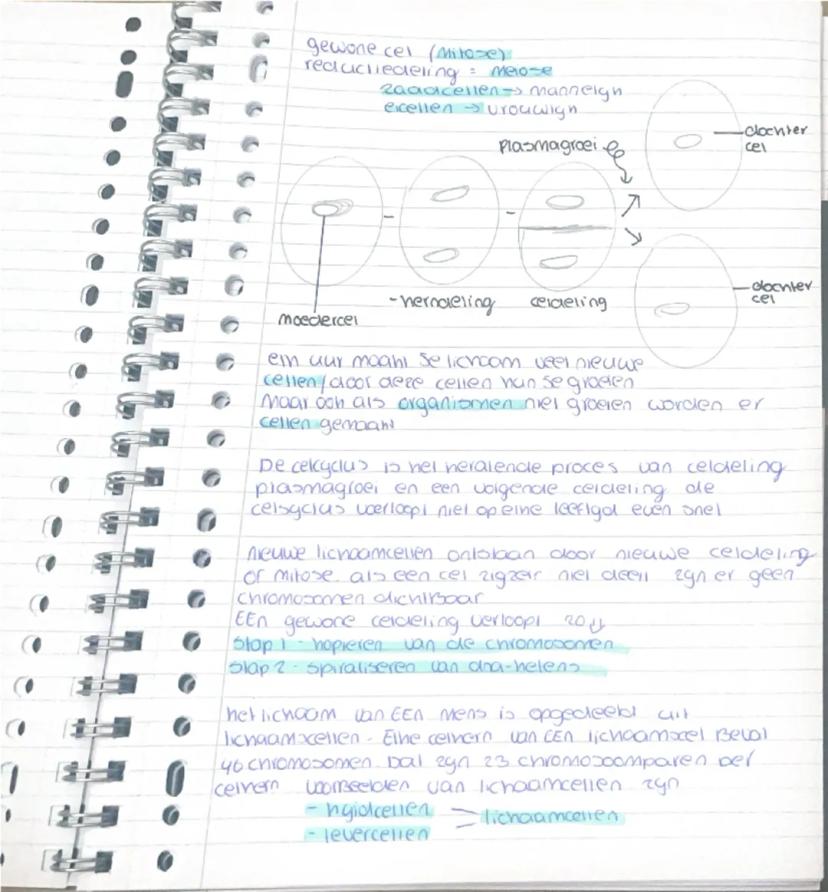 gewone cel (Mitose)
reductiedeling = Meiose
zaadcellen → mannelijn
eicellen → vrouwlijn
plasmagroei
dochter
cel
moedercel
-kerndeling
celdeling
dochter
cel
elk uur maakt je lichaam veel nieuwe
cellen/door deze cellen kun je groeien
Maar ook als organismen niet groeien worden er
cellen gemaakt
De celcyclus is het herhalende proces van celdeling
plasmagroei en een volgende celdeling de
celcyclus verloopt niet op elke leeftijd even snel
nieuwe lichaamcellen ontstaan door nieuwe celdeling
of mitose. als een cel zigzelf niet deelt zijn er geen
chromosomen zichtbaar
EEn gewone celdeling verloopt zo↓
Stap 1 - kopieren van de chromosomen
Stap 2 - spiraliseren van dna-ketens
het lichaam van EEN mens is opgedeeld uit
lichaamscellen. Elke celkern van EEN lichaamscel Bevat
46 chromosomen. Dat zijn 23 chromosoomparen per
celkern voorbeelden van lichaamcellen zijn
- huidcellen
- levercellen
> lichaamcellen